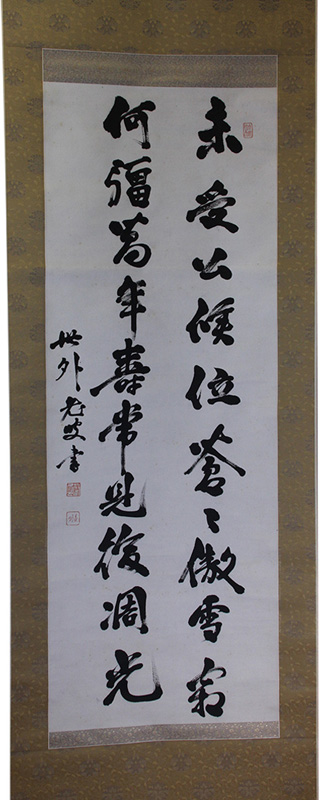 未受公侯位蒼々傲雪霜
何彊萬年壽常見後凋光
世外老叟書